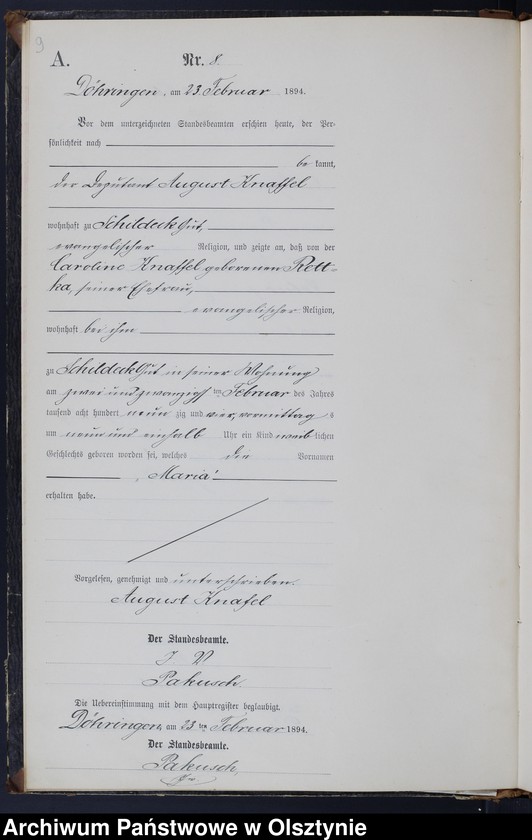 9
A.
Nr. 8.
Döhringen, am 23. Februar 1894.
Vor dem unterzeichneten Standesbeamten erschien heute, der Per-
sönlichkeit nach
be kannt,
der Deputant August Knaffel
wohnhaft zu Schildeck Gut,
evangelischer Religion, und zeigte an, daß von der
Caroline Knaffel geborenen Rett-
ka, seiner Ehefrau,
evangelischer Religion,
wohnhaft bei ihm
zu Schildeck Gut in seiner Wohnung
am zwei und zwanzigsten Februar des Jahres
tausend acht hundert neun zig und vier, vormittags
um neun und einhalb Uhr ein Kind weib lichen
Geschlechts geboren worden sei, welches den Vornamen
„Maria“
erhalten habe.
Vorgelesen, genehmigt und unterschrieben.
August Knafel
Der Standesbeamte.
I V
Pakusch.
Die Uebereinstimmung mit dem Hauptregister beglaubigt.
Döhringen, am 23 ten Februar 1894.
Der Standesbeamte.
Pakusch,
Archiwum Państwowe w Olsztynie